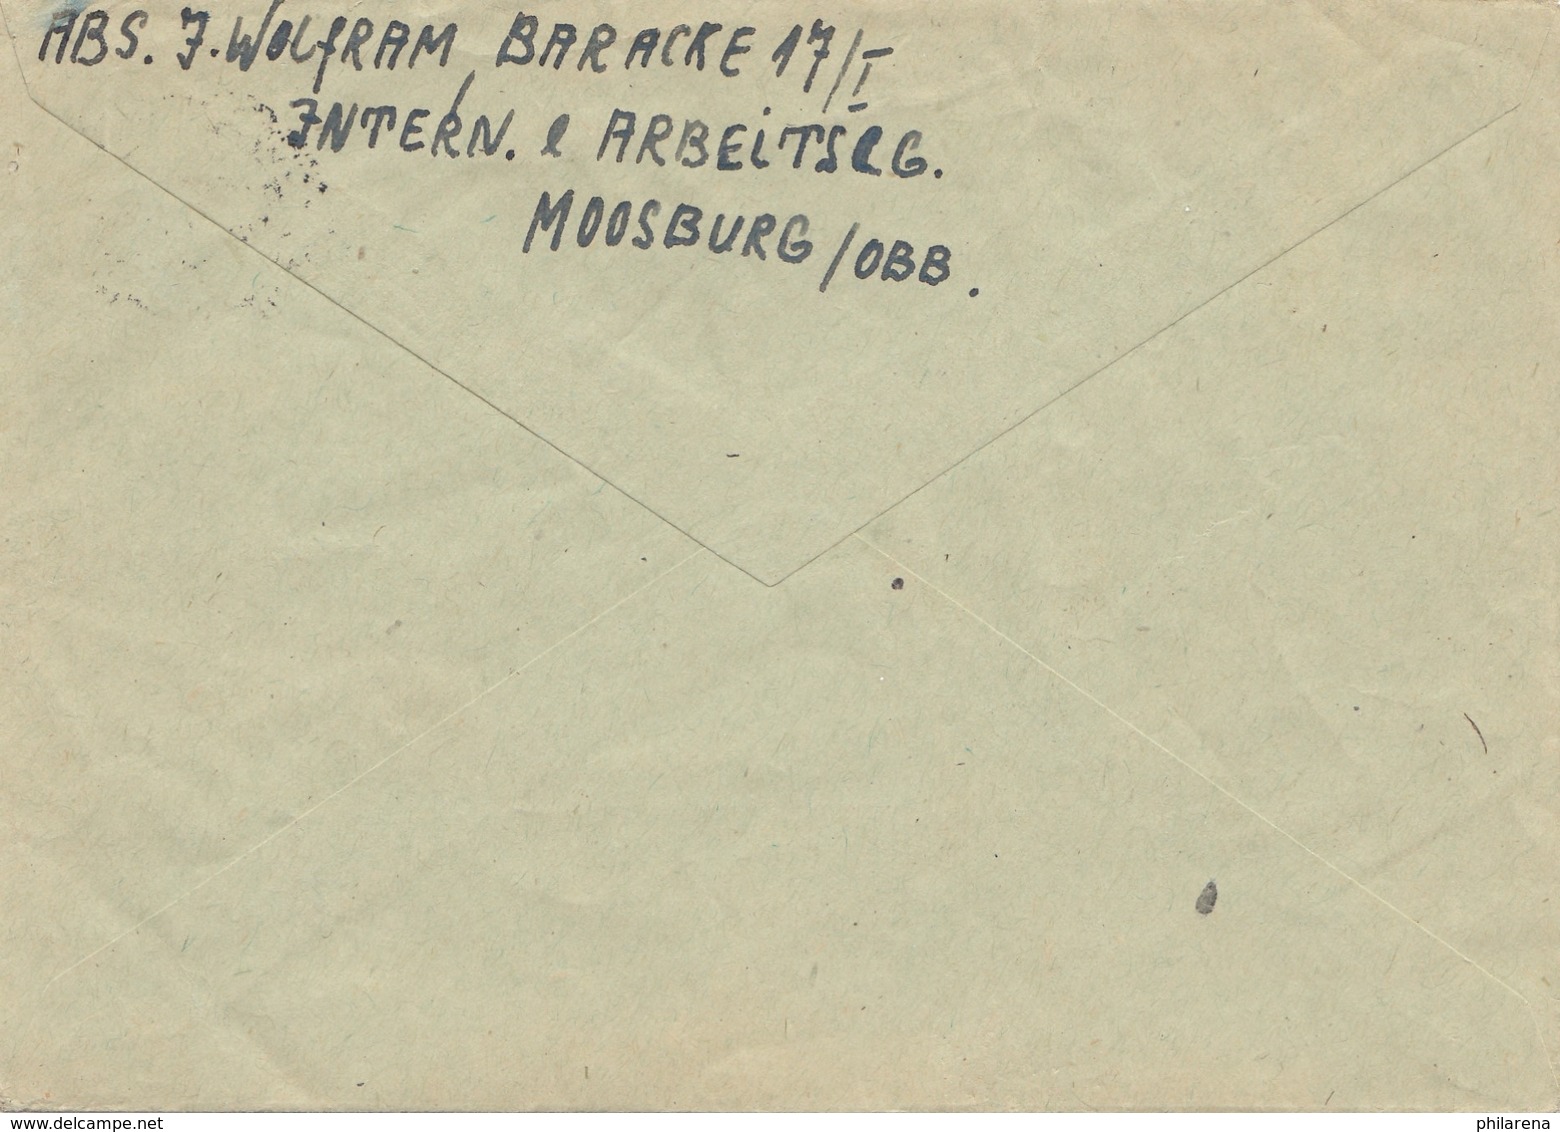 ABS. J. WOLfRAM, BARACKE 17/I
INTERN. & ARBEiTSLG.
MOOSBURG/OBB.
www.delcampe.net
philarena